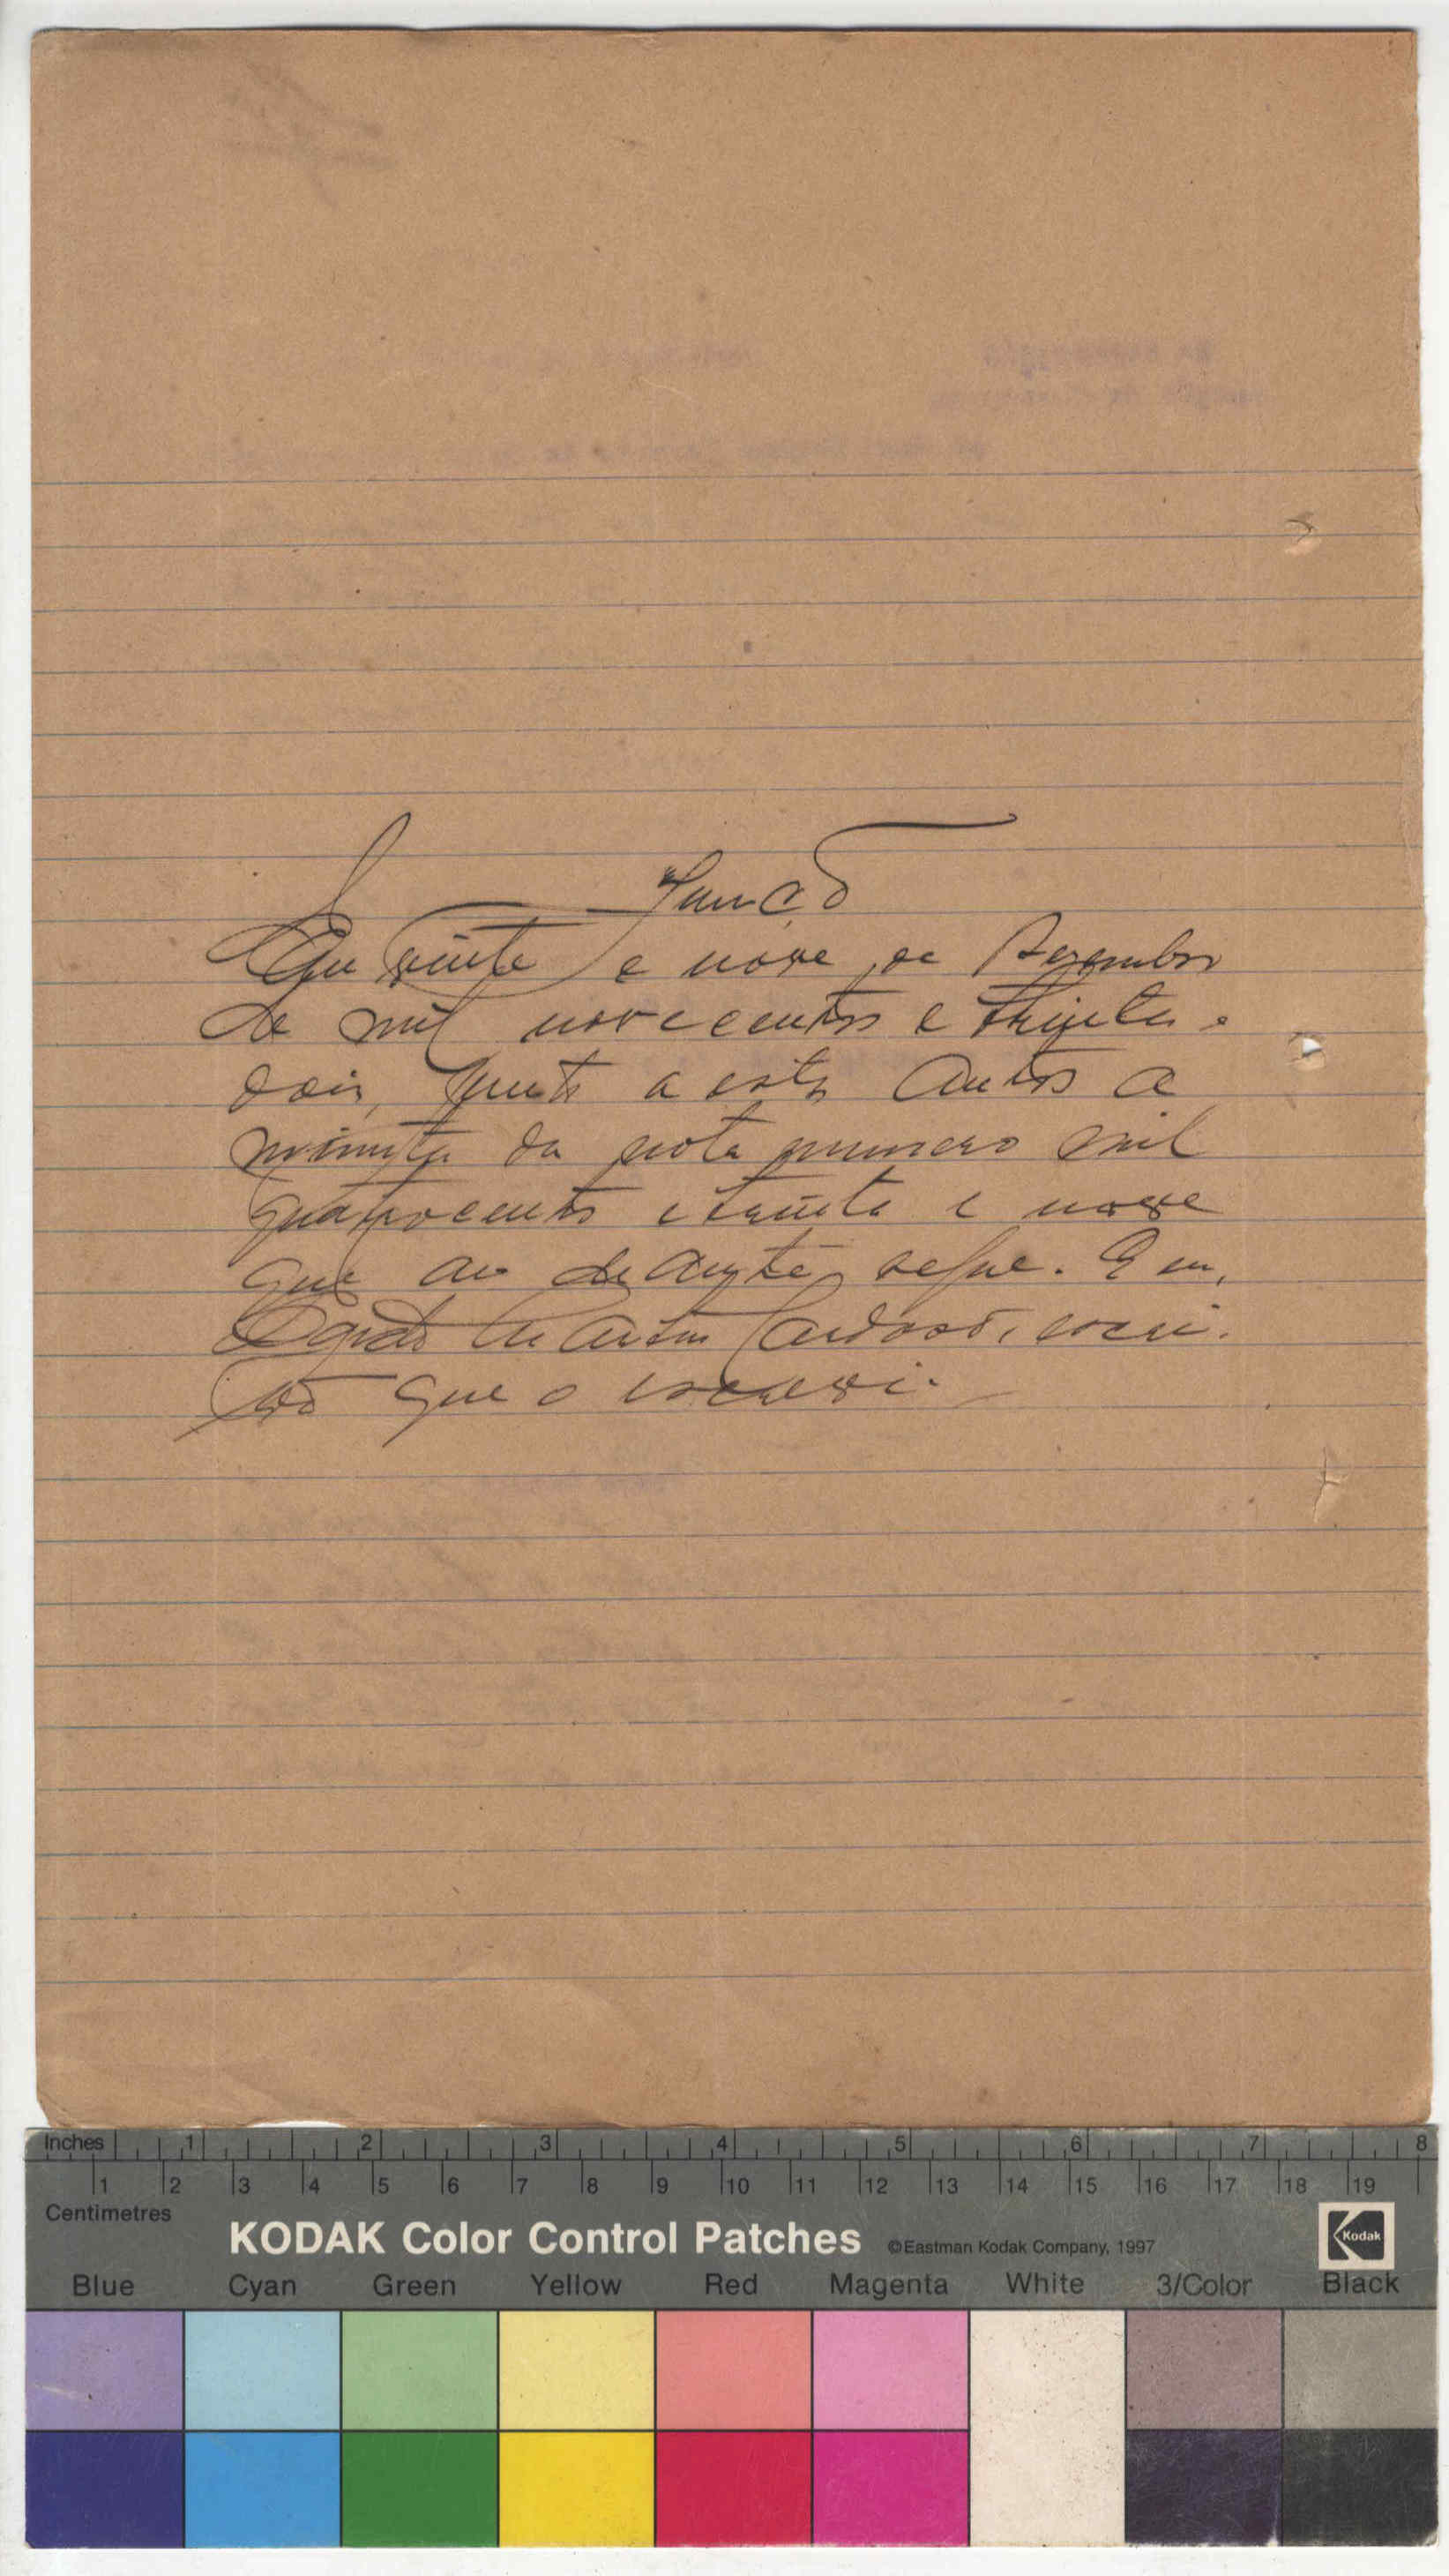 Junção
Em vinte e nove de Dezembro
de mil novecentos e trinta e
dois, junto a estes autos a
minuta da nota numero mil
quatrocentos e trinta e nove
que ao deante segue. E eu,
Martins Cardoso, escri-
vão que o escrevi.
Inches 1 2 3 4 5 6 7 8
1 2 3 4 5 6 7 8 9 10 11 12 13 14 15 16 17 18 19
Centimetres
KODAK Color Control Patches ©Eastman Kodak Company, 1997 Kodak
Blue Cyan Green Yellow Red Magenta White 3/Color Black